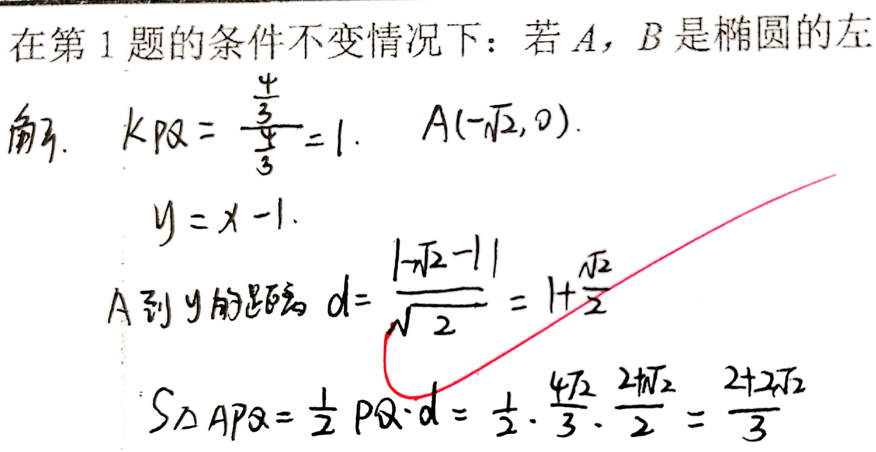 在第 1 题的条件不变情况下：若 A，B 是椭圆的左
解. KPQ = \frac{\frac{4}{3}}{\frac{4}{3}} = 1. A(-√2, 0).
y = x - 1.
A到y的距离 d = \frac{|-√2-1|}{√2} = 1+\frac{√2}{2}
S△APQ = \frac{1}{2} PQ·d = \frac{1}{2}·\frac{4√2}{3}·\frac{2+√2}{2} = \frac{2+2√2}{3}